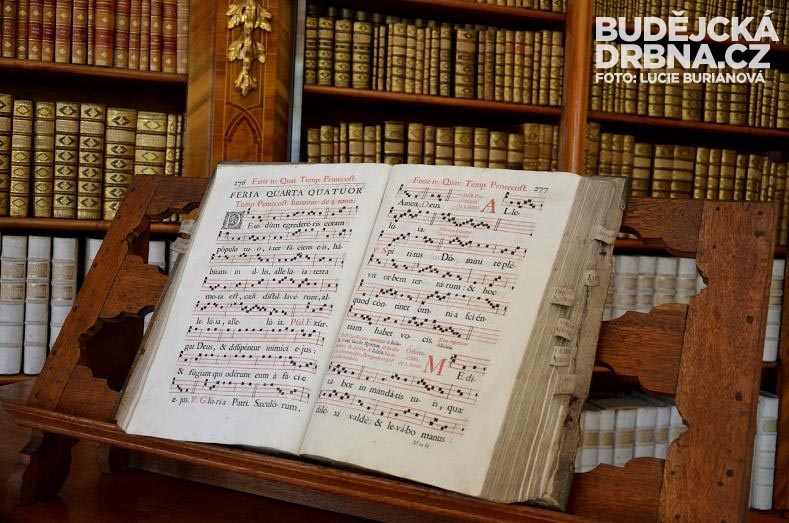 BUDĚJCKÁ
DRBNA.CZ
FOTO: LUCIE BURIANOVÁ
276 Feria iv. Quat. Temp. Pentecost.
FERIA QUARTA QUATUOR
Temp. Pentecost. Introitus: de 3. tono.
DEus dùm egrederéris coram
pópulo tu o, iter fáciens eis, há-
bitans in illis, allelúia: terra
mota est, cæli distillavérunt, al-
lelúia, allelúia. Psal. Exúr-
gat Deus, & dissipéntur inimíci ejus:
& fúgiant qui odérunt eum à fácie
ejus. V. Glória Patri. Sæculórum,
Feria iv. Quat. Temp. Pentecost. 277
Amen. Deus. Alle-
lúia.
V. Spíritus Dómini replé-
vit orbem terrárum: & hoc
quod cóntinet ómnia scién-
tiam habet vocis.
MEdi-
tábor in mandátis tuis, quæ
diléxi valdè: & levábo manus